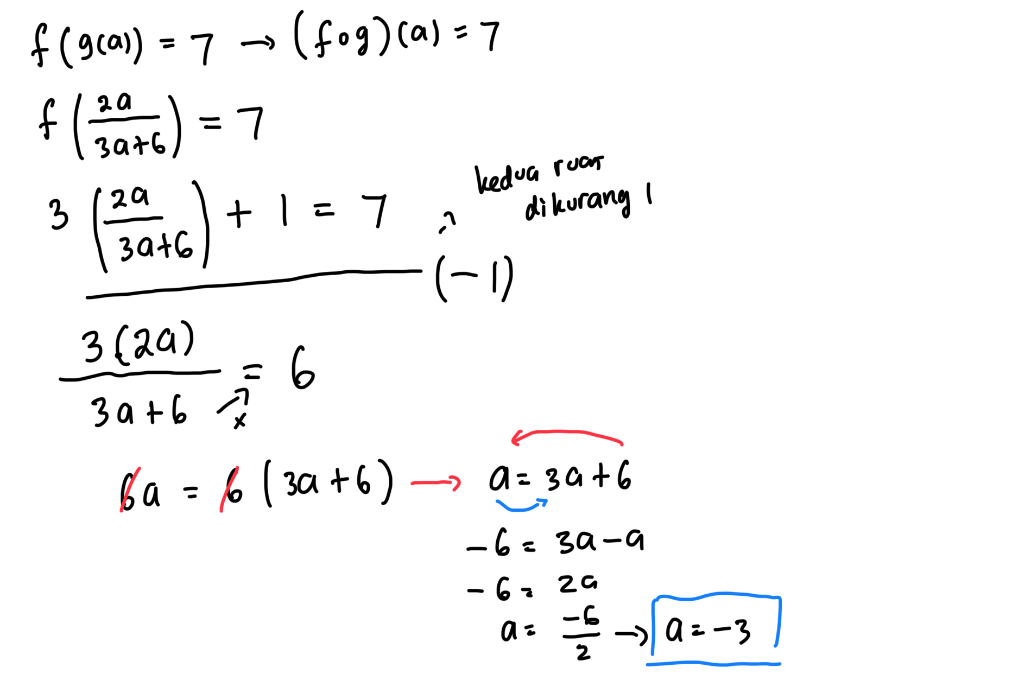 f(g(a)) = 7 → (fog)(a) = 7
f(2a/(3a+6)) = 7
3(2a/(3a+6)) + 1 = 7
kedua ruas
dikurang 1
(-1)
3(2a)/(3a+6) = 6
x
6a = 6(3a+6) → a = 3a+6
-6 = 3a-a
-6 = 2a
a = -6/2 → a = -3